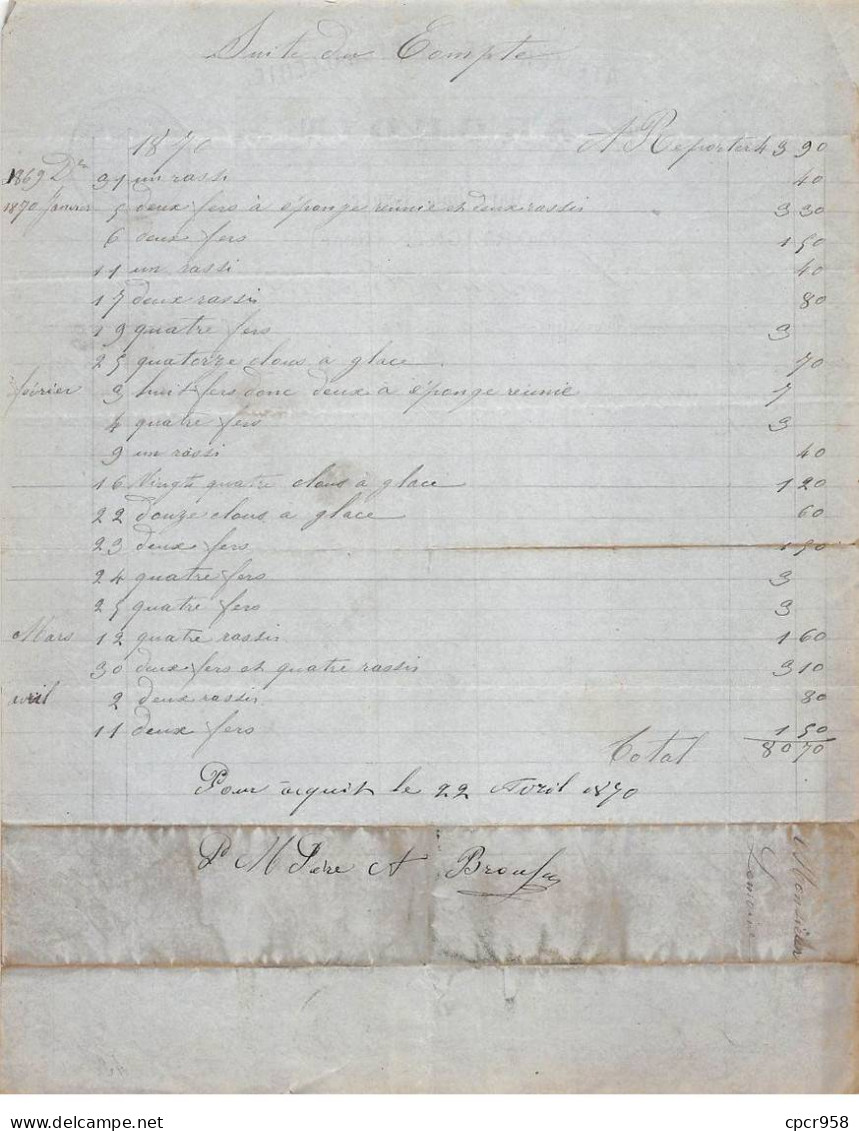 Suite du Compte
1870 A Reporter 43 90
1869 Dre 31 un rassi 40
1870 Janvier 5 deux fers à éponge réunie et deux rassis 3 30
6 deux fers 1 50
11 un rassi 40
17 deux rassis 80
19 quatre fers 3
25 quatorze clous à glace 70
février 3 huit fers donc deux à éponge réunie 7
4 quatre fers 3
9 un rassi 40
16 Vingt quatre clous à glace 1 20
22 douze clous à glace 60
23 deux fers 1 50
24 quatre fers 3
25 quatre fers 3
Mars 12 quatre rassis 1 60
30 deux fers et quatre rassis 3 10
avril 2 deux rassis 80
11 deux fers 1 50
Total 80 70
Pour acquit le 22 Avril 1870
Pr M Père A
Monsieur
Lemoine
cpcr958